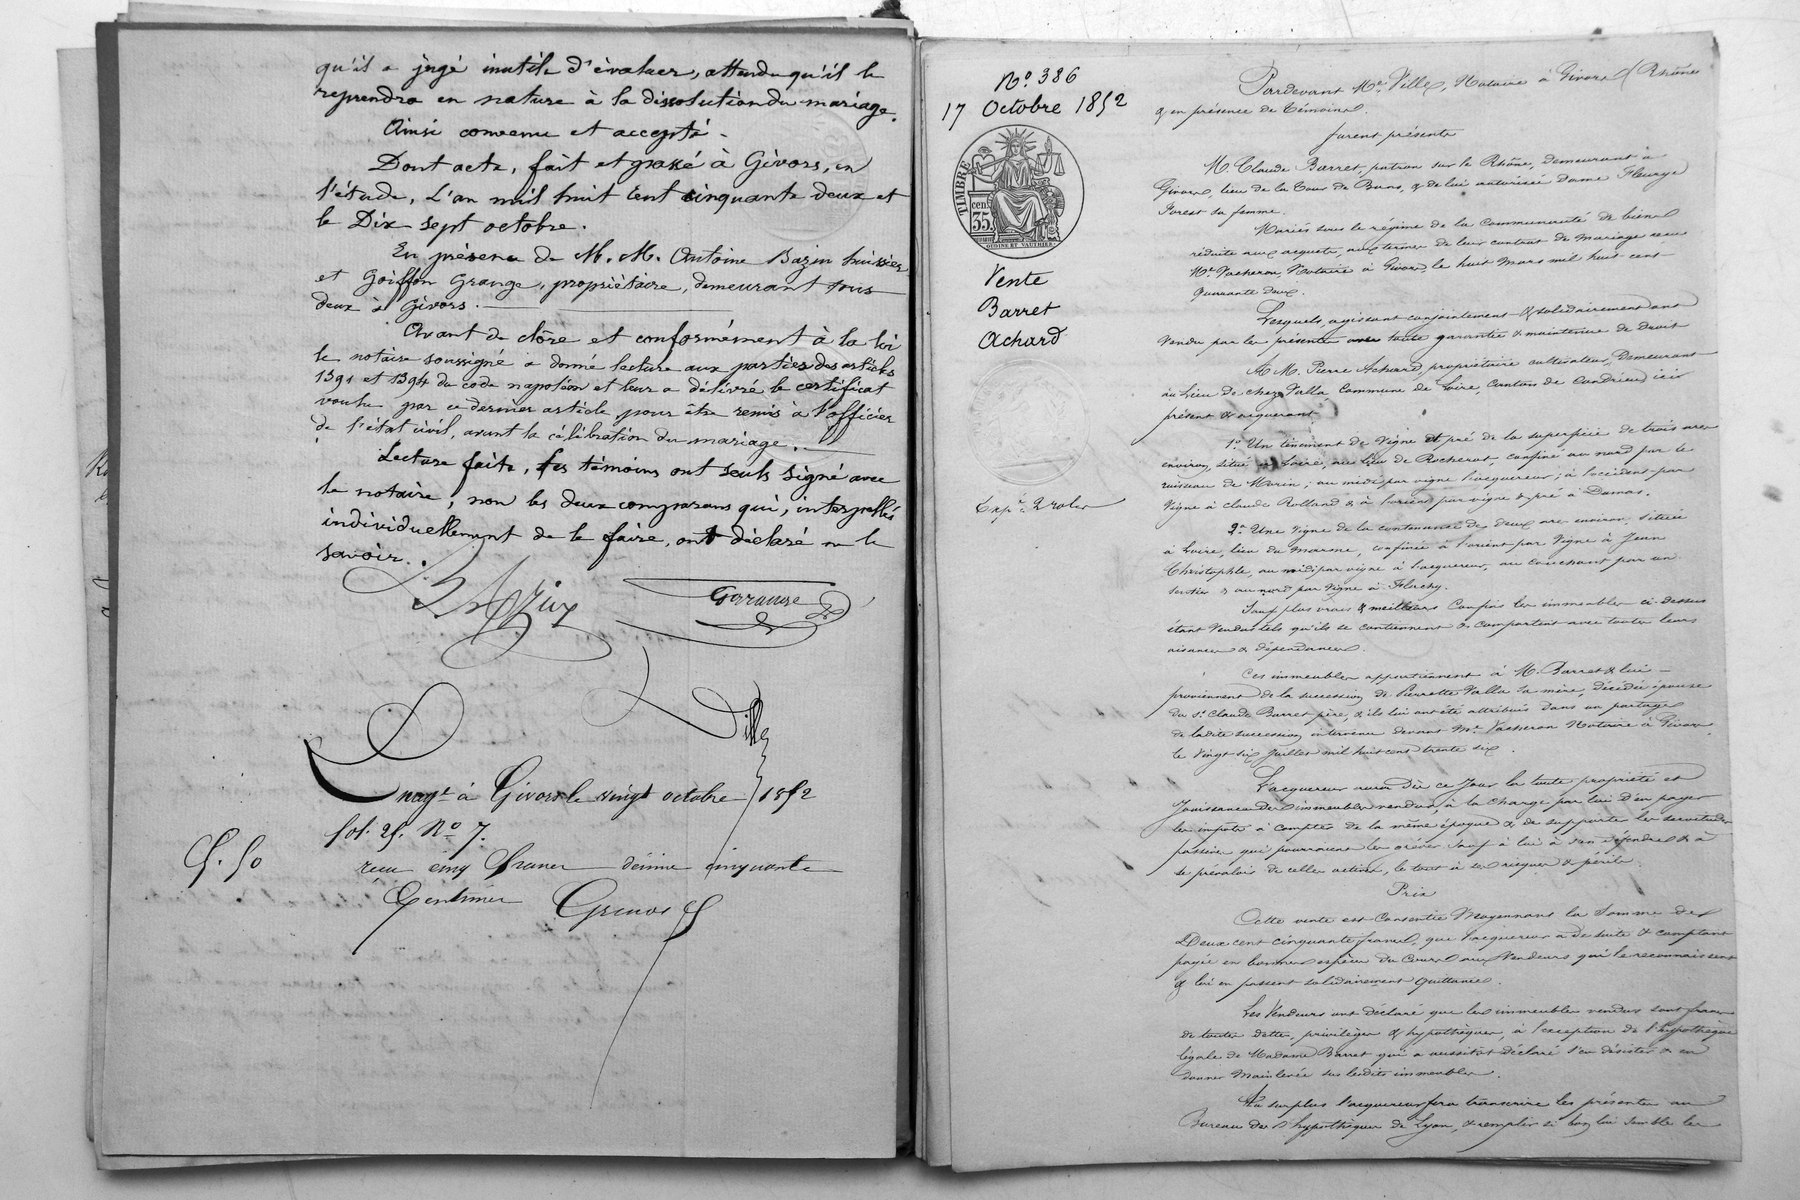 qu'il a jugé inutile d'évaluer, attendu qu'il le
reprendra en nature à la dissolution du mariage.
Ainsi convenu et accepté.
Dont acte, fait et passé à Givors, en
l'étude, L'an mil huit cent cinquante deux et
le Dix sept octobre.
En présence de M. M. Antoine Bazin huissier
et Goiffon Grange, propriétaire, demeurant tous
deux à Givors.
Avant de clôre et conformément à la loi
le notaire soussigné a donné lecture aux parties des articles
1391 et 1394 du code napoléon et leur a délivré le certificat
voulu par ce dernier article, pour être remis à l'officier
de l'état civil, avant la célébration du mariage.
Lecture faite, les témoins ont seuls signé avec
le notaire, non les deux comparans qui, interpellés
individuellement de le faire, ont déclaré ne le
savoir.
Bazin
Grange
Ville
Enregt à Givors le vingt octobre 1852
fol. 25. No 7.
5. 50
reçu cinq francs décime cinquante
Centimes
No 386
17 Octobre 1852
TIMBRE
cen.
35
Vente
Barret
Achard
Pardevant Me Ville, Notaire à Givors (Rhône)
& en présence de témoins.
furent présents
M. Claude Barret, patron sur le Rhône, demeurant à
Givors, lieu de la Tour de Bans, & de lui autorisée Dame Fleurye
Forest sa femme.
Mariés sous le régime de la Communauté de biens
réduite aux acquets, aux termes de leur contrat de mariage reçu
Me Vacheron, Notaire à Givors, le huit Mars mil huit cent
quarante deux.
Lesquels, agissant conjointement & solidairement ont
vendu par les présentes avec toute garantie & maintenue de droit
A M. Pierre Achard, propriétaire cultivateur, Demeurant
au Lieu de chez Valla, Commune de Loire, Canton de Condrieu, ici
présent & acquerant,
1o Un tènement de Vigne et pré de la superficie de trois ares
environ, situé à Loire, au Lieu de Rocherot, confiné au nord par le
ruisseau de Morin; au midi par vigne à l'acquereur; à l'occident par
Vigne à claude Rolland & à l'orient par vigne & pré à Damas.
2o Une Vigne de la contenance de deux ares environ, située
à Loire, lieu du Marme, confinée à l'orient par Vigne à Jean
Christophle, au midi par vigne à l'acquereur, au couchant par un
sentier & au nord par Vigne à Flachy.
Sauf plus vrais & meilleurs Confins les immeubles ci-dessus
étant Vendus tels qu'ils se contiennent & comportent avec toutes leurs
aisances & dépendances.
Ces immeubles appartiennent à M. Barret & lui
proviennent de la succession de Pierrette Valla sa mère, décédée épouse
du Sr Claude Barret père, & ils lui ont été attribués dans un partage
de ladite succession intervenu devant Me Vacheron Notaire à Givors,
le Vingt-six Juillet mil huit cent trente six.
L'acquereur aura Dès ce Jour la toute propriété et
Jouissance des immeubles vendus, à la charge par lui d'en payer
les impots à compter de la même époque & de supporter les servitudes
passives qui pourraient les grever sauf à lui à s'en défendre & à
se prévaloir de celles actives, le tout à ses risques & périls.
Prix
Cette vente est Consentie Moyennant la Somme de
Deux cent cinquante francs, que l'acquereur a de suite & comptant
payée en bonnes espèces du Cours aux Vendeurs qui le reconnaissent
& lui en passent solidairement quittance.
Les Vendeurs ont déclaré que les immeubles vendus sont francs
de toutes dettes, privilèges & hypothèques, à l'exception de l'hypothèque
légale de Madame Barret qui a aussitôt déclaré s'en désister & en
donner Mainlevée sur lesdits immeubles.
Au surplus l'acquereur fera transcrire les présentes au
Bureau des hypothèques de Lyon, & remplir si bon lui semble les